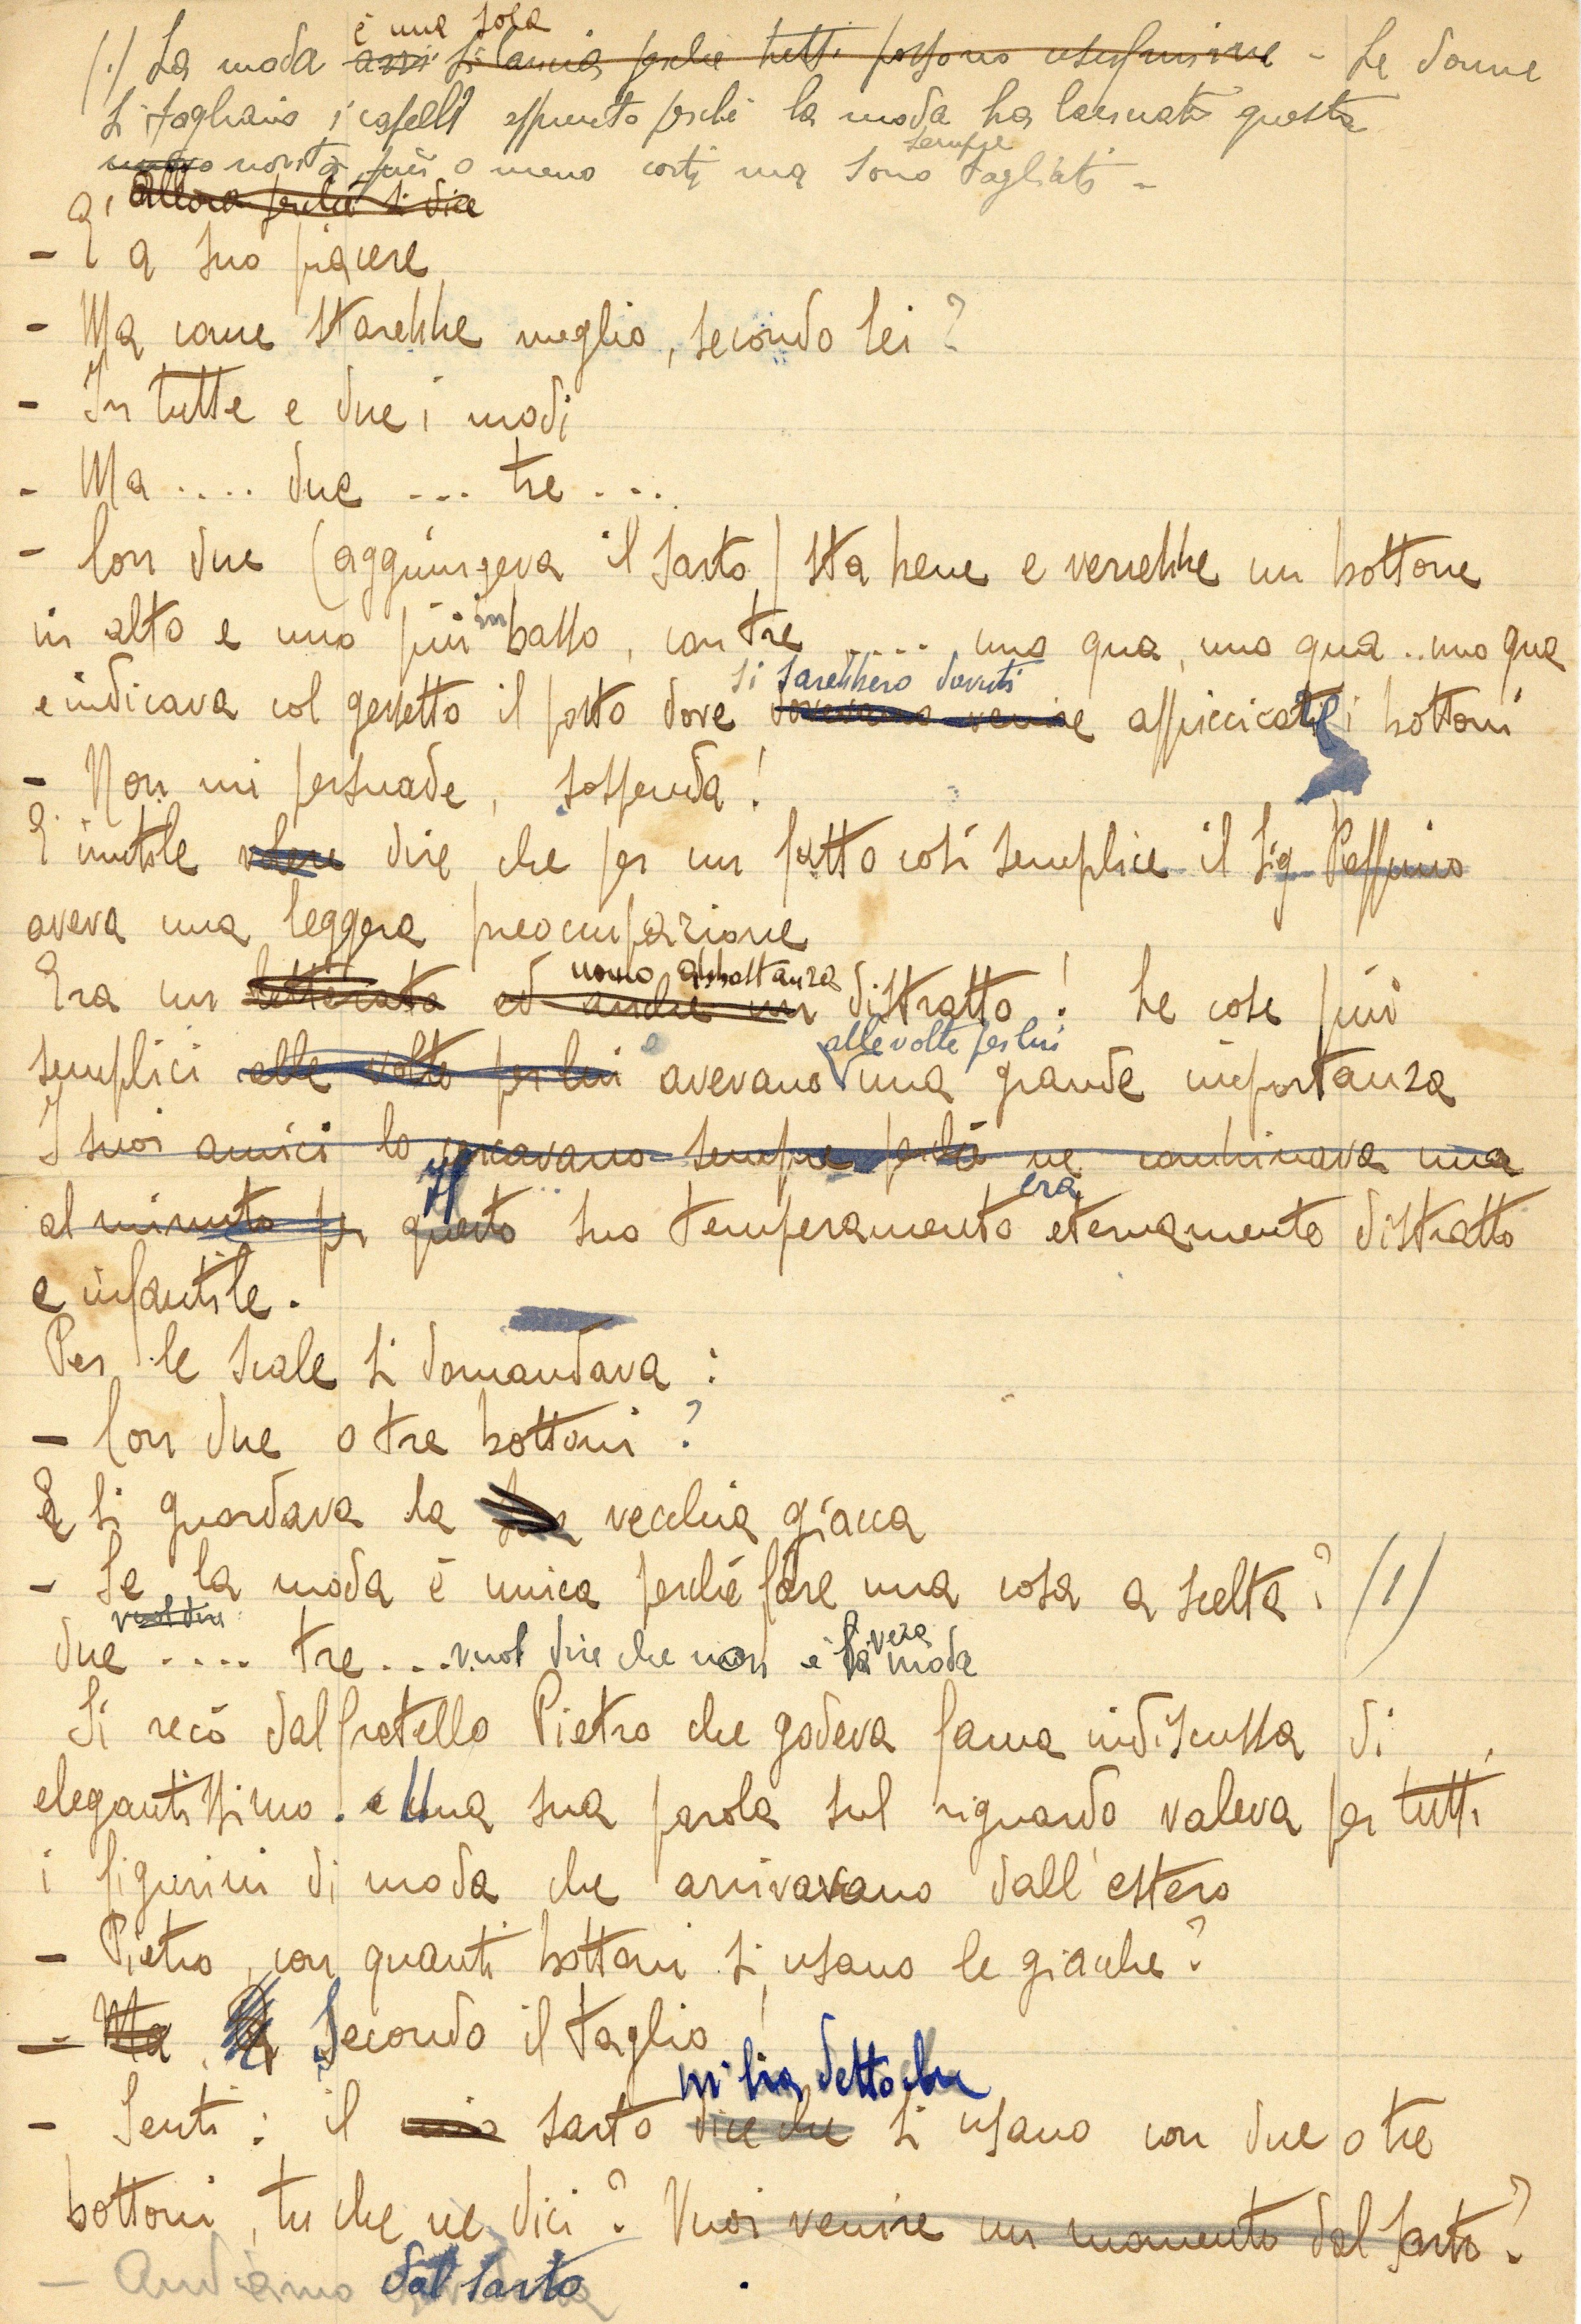 è una sola
(1) La moda anzi si lancia perchè tutti possono usufruirne - Le donne
si tagliano i capelli appunto perchè la moda ha lanciato questa
sempre
nuovo novità più o meno corti ma sono tagliati -
allora perchè si dice
- È a suo piacere
- Ma come starebbe meglio, secondo lei?
- In tutte e due i modi
- Ma .... due ... tre ...
- Con due (aggiungeva il sarto) sta bene e verrebbe un bottone
in alto e uno più in basso, con tre ..... uno qua, uno qua .. uno qua
si sarebbero dovuti
e indicava col gessetto il posto dove dovevano venire appiccicati i bottoni
- Non mi persuade, sospenda!
È inutile volere dire, che per un fatto così semplice il Sig. Peppino
aveva una leggera preoccupazione
uomo abbastanza
Era un letterato ed anche un distratto! Le cose più
alle volte per lui
semplici alle volte per lui avevano una grande importanza
I suoi amici lo cercavano sempre perchè ne combinava una
Il era
al minuto per questo suo temperamento eternamente distratto
e infantile.
Per le scale si domandava:
- Con due o tre bottoni?
E si guardava la sua vecchia giacca
- Se la moda è unica perchè fare una cosa a scelta? (1)
vuol dire vera
due .... tre .... vuol dire che non è la moda
Si recò dal fratello Pietro che godeva fama indiscussa di
elegantissimo. e Una sua parola sul riguardo valeva per tutti
i figurini di moda che arrivavano dall'estero
- Pietro, con quanti bottoni si usano le giacche?
- Ma Secondo il taglio!
mi ha detto che
- Senti: il mio sarto dice che si usano con due o tre
bottoni, tu che ne dici? Vuoi venire un momento dal sarto?
- Andiamo dal sarto